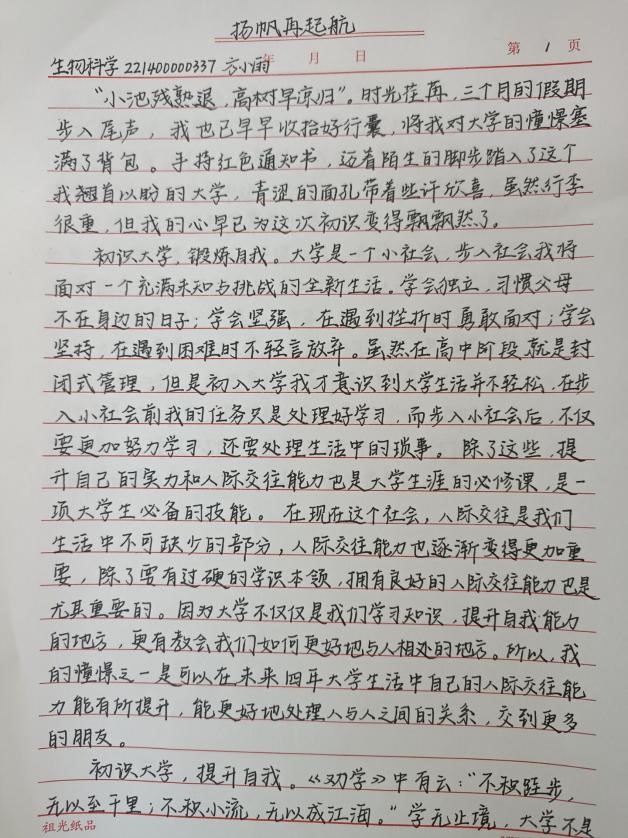 扬帆再起航
年 月 日 第 1 页
生物科学 221400000337 小雨
“小池残熟退,高树早凉归”。时光荏苒,三个月的假期
步入尾声,我也已早早收拾好行囊,将我对大学的憧憬塞
满了背包。手持红色通知书,迈着陌生的脚步踏入了这个
我翘首以盼的大学,青涩的面孔带着些许欣喜,虽然行李
很重,但我的心早已为这次初识变得飘飘然了。
初识大学,锻炼自我。大学是一个小社会,步入社会我将
面对一个充满未知与挑战的全新生活。学会独立,习惯父母
不在身边的日子;学会坚强,在遇到挫折时勇敢面对;学会
坚持,在遇到困难时不轻言放弃。虽然在高中阶段就是封
闭式管理,但是初入大学我才意识到大学生活并不轻松,在步
入小社会前我的任务只是处理好学习,而步入小社会后,不仅
要更加努力学习,还要处理生活中的琐事。除了这些,提
升自己的实力和人际交往能力也是大学生涯的必修课,是一
项大学生必备的技能。在现在这个社会,人际交往是我们
生活中不可缺少的部分,人际交往能力也逐渐变得更加重
要,除了要有过硬的学识本领,拥有良好的人际交往能力也是
尤其重要的。因为大学不仅仅是我们学习知识,提升自我能力
的地方,更有教会我们如何更好地与人相处的地方。所以,我
的憧憬之一是可以在未来四年大学生活中自己的人际交往能
力能有所提升,能更好地处理人与人之间的关系,交到更多
的朋友。
初识大学,提升自我。《劝学》中有云:“不积跬步,
无以至千里;不积小流,无以成江海。”学无止境,大学不是
祖光纸品